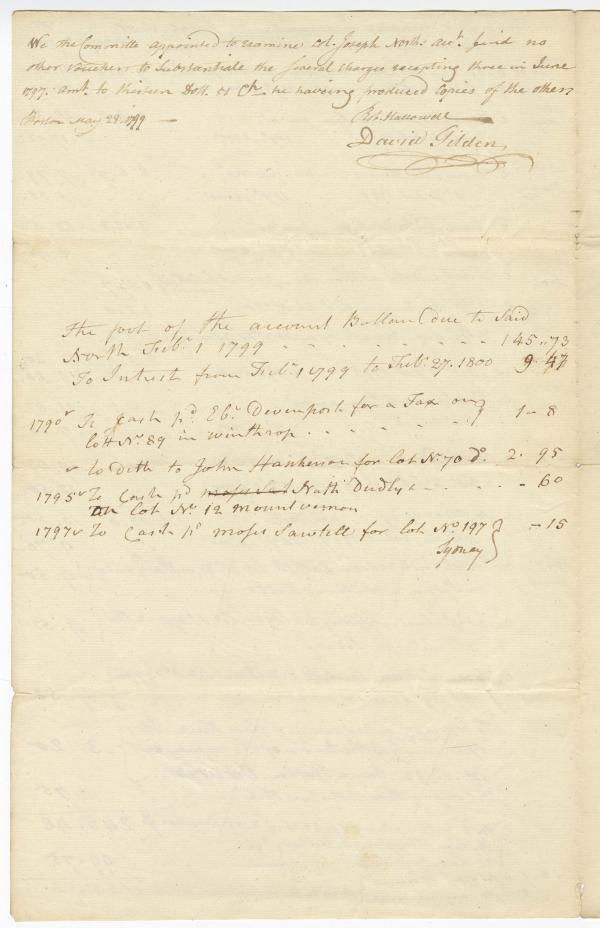 We the Committe appointed to examine Col. Joseph North acct. find no
other vouchers to Substantiate the several charges excepting those in June
1797. amt. to thirteen Doll. 51 Cts. he haveing produced Copies of the others
Boston May 28. 1799 —
Rob. Hallowell
David Gilden
The foot of the account Ballance due to Said
North Feb. 1 1799 . . . . . . . . 145..73
To Intrest from Feb. 1 1799 to Feb. 27. 1800 9 47
1790 To Cash pd. Ebr. Devenport for a Tax on } 1 – 8
lott No. 89 in winthrop . . . . .
v to Ditto to John Hankerson for lot No. 70 Do. 2. 95
1795 v To Cash pd moses Sat Nathl Dudly . . . – 60
on lot No. 12 mount vernon
1797 v To Cash pd moses Sawtell for lot No 197 } – 15
Sydney